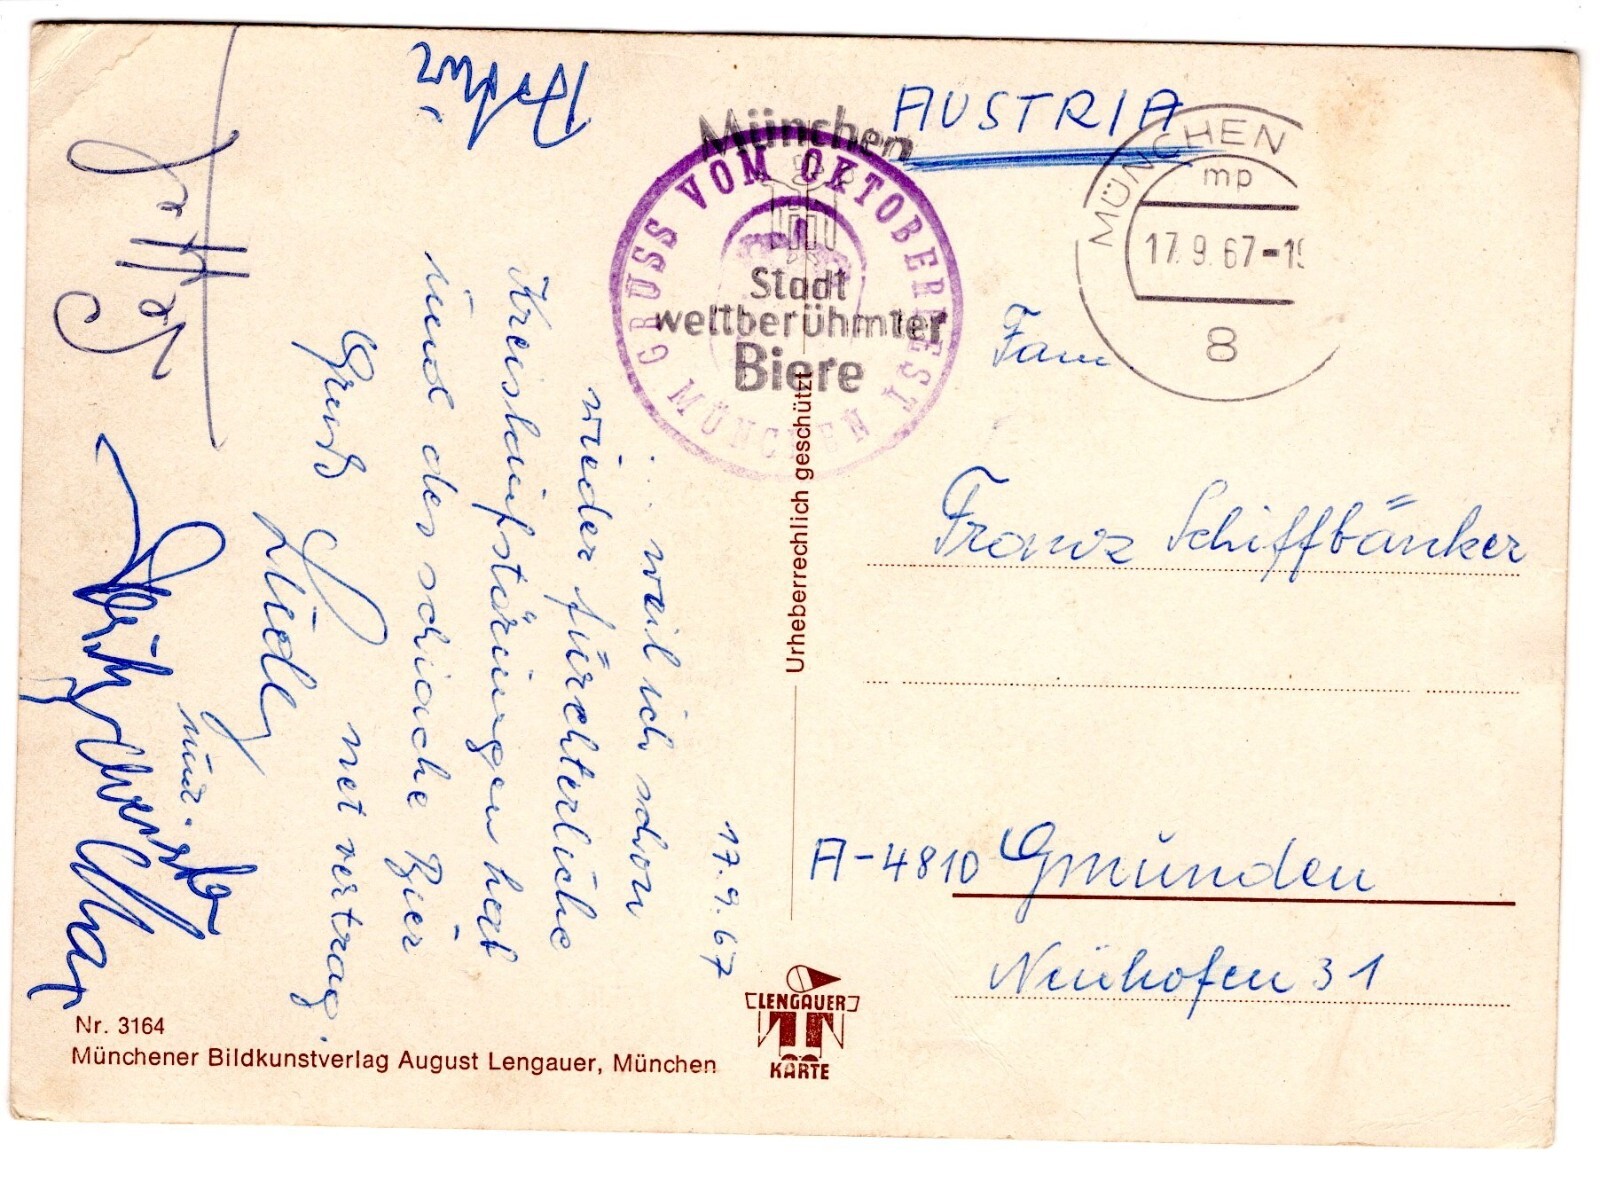 AUSTRIA
München
Stadt
weltberühmter
Biere
GRUSS VOM OKTOBERFEST
MÜNCHEN
MÜNCHEN
mp
17.9.67-19
8
17.9.67
... weil ich schon
wieder fürchterliche
Kreislaufstörungen hat
und des schiache Bier
net vertrag.
Gruß
und
Urheberrechlich geschützt
Fam.
Franz Schiffbänker
A-4810 Gmunden
Neuhofen 31
LENGAUER
KARTE
Nr. 3164
Münchener Bildkunstverlag August Lengauer, München